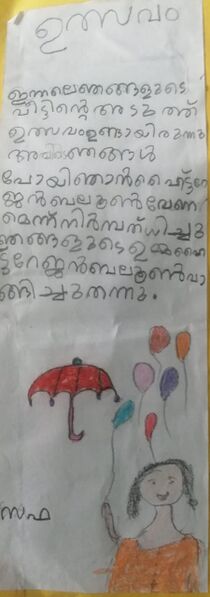 ഉത്സവം
ഇന്നലെഞങ്ങളുടെ
വീട്ടിന്റെ അടുത്ത്
ഉത്സവംഉണ്ടായിരുന്നു
ഞങ്ങൾ
പോയിഞാൻഹൈഡ്രേ
ജൻബലൂൺവേണ
മെന്ന്നിർബന്ധിച്ചു
ഞങ്ങളുടെ
ജൻബലൂൺവാ
ങ്ങിച്ചുതന്നു.
സഫ